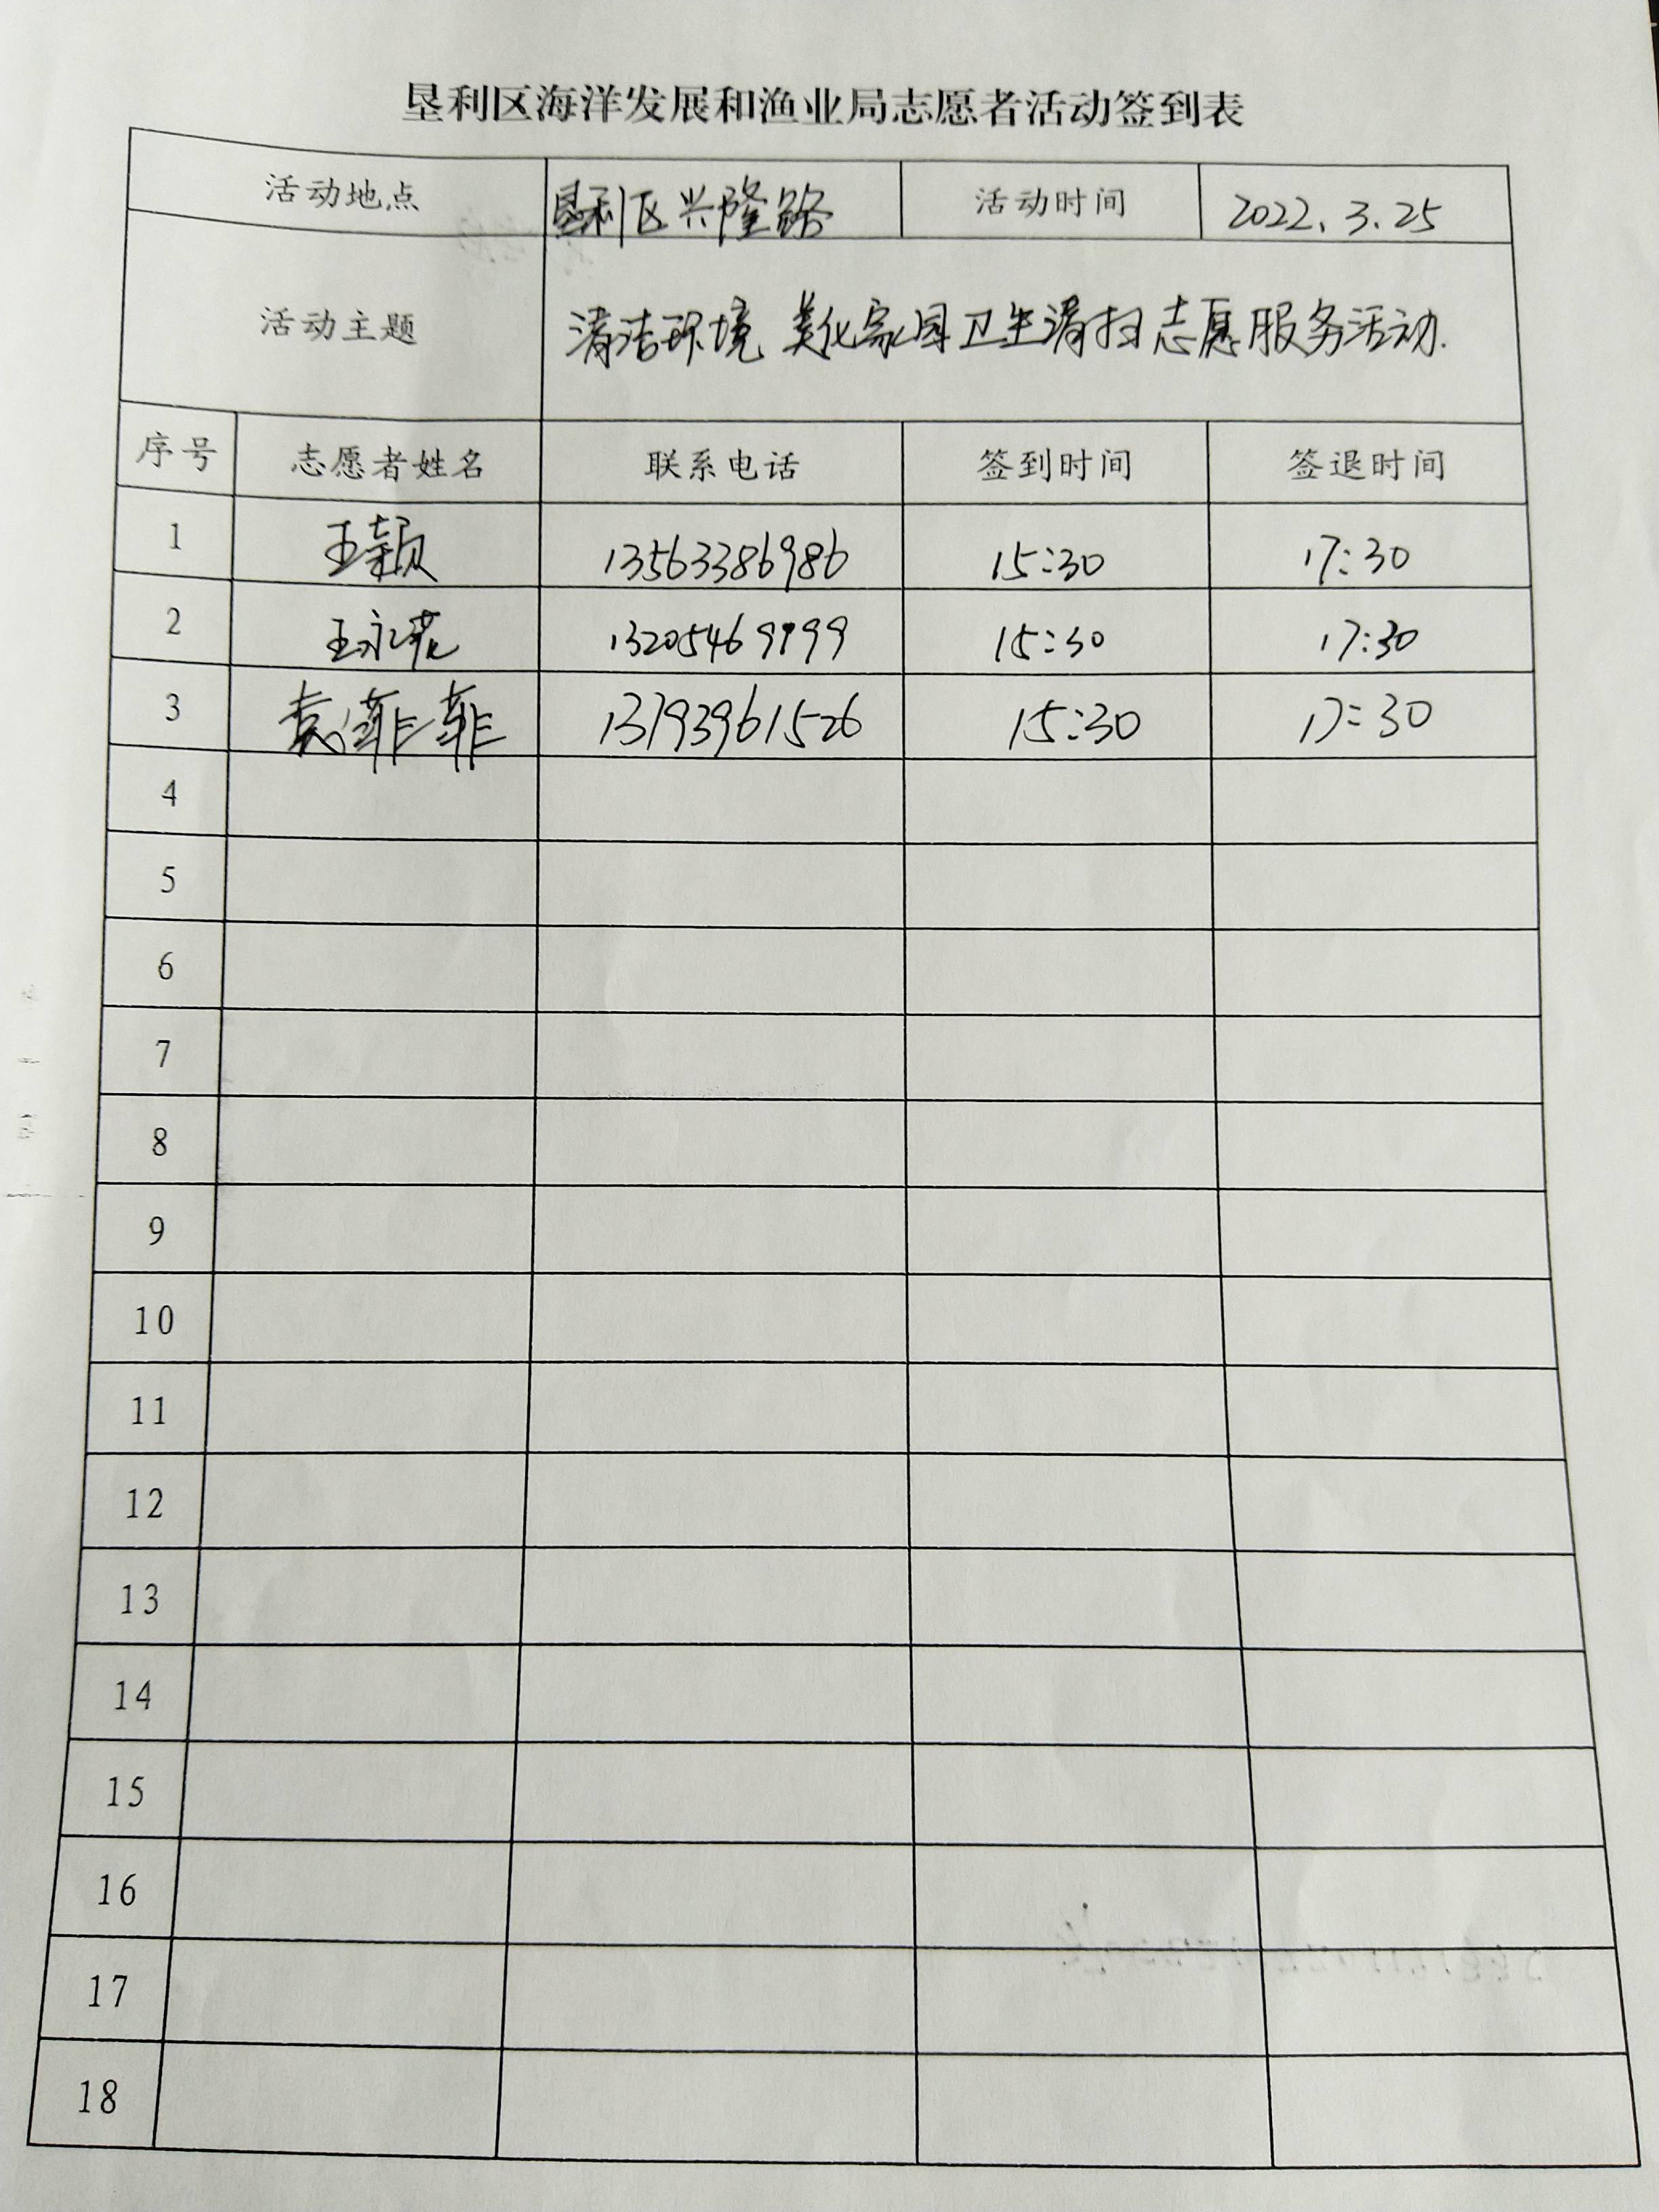 垦利区海洋发展和渔业局志愿者活动签到表
活动地点 垦利区兴隆路 活动时间 2022.3.25
活动主题 清洁环境 美化家园卫生清扫志愿服务活动.
序号 志愿者姓名 联系电话 签到时间 签退时间
1 王颖 13563386986 15:30 17:30
2 王永花 13205469999 15:30 17:30
3 袁菲菲 13793961526 15:30 17:30
4
5
6
7
8
9
10
11
12
13
14
15
16
17
18